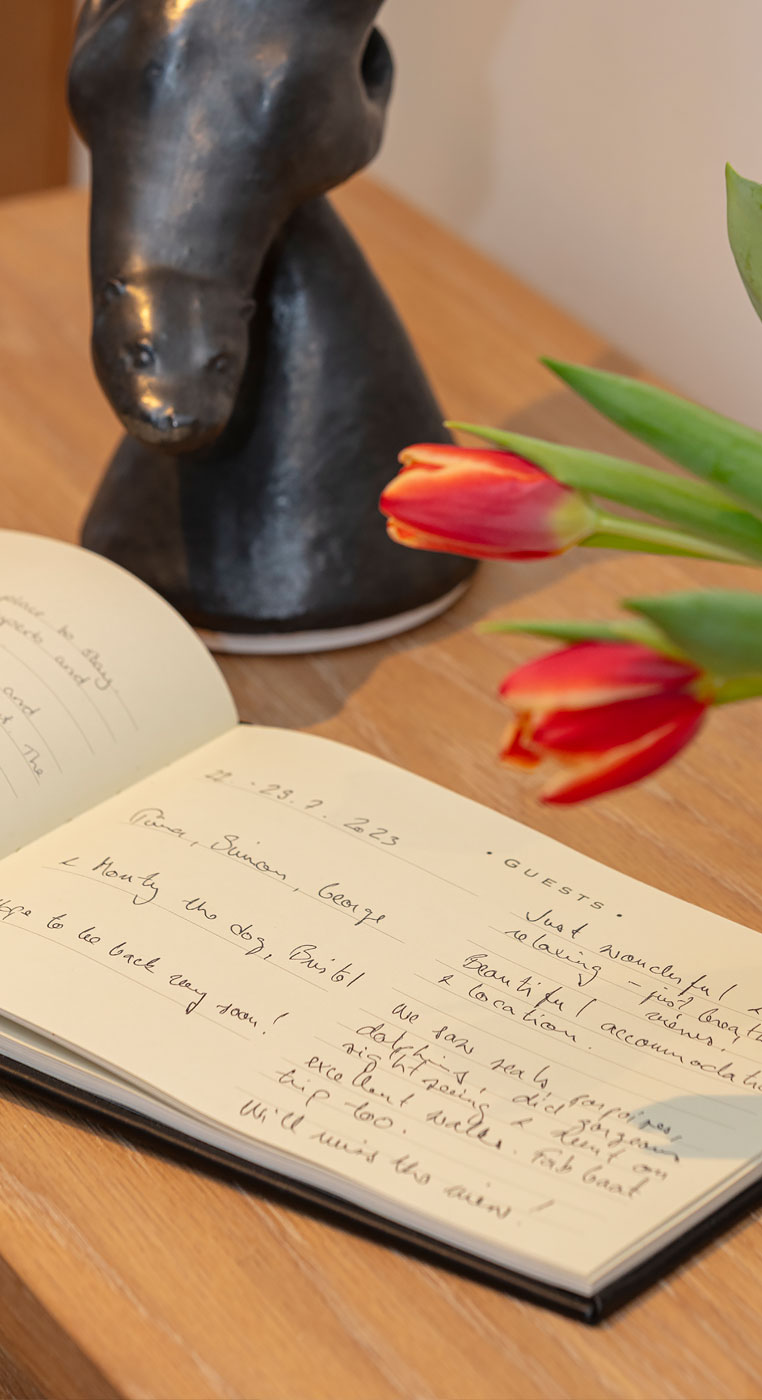 place to stay.
and
and
The
22. - 29. 7. 2023
Tina, Simon, George
& Monty the dog, Bristol
Hope to be back very soon!
• GUESTS •
Just wonderful &
relaxing - just breath
views.
Beautiful accommodatio
& location.
We saw seals, porpoises,
dolphins, did gorgeous
sight seeing & went on
excellent walks. Fab boat
trip too.
Will miss the view!